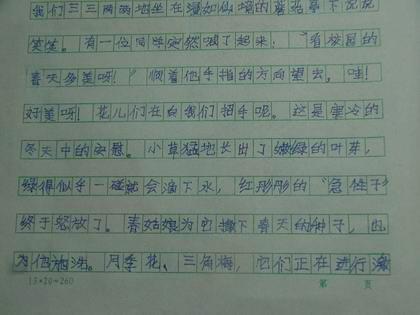 我们三三两两地坐在潘如仙境的蘑菇亭下说说
笑笑。有一位同学突然喊了起来："看校园的
春天多美呀！"顺着他手指的方向望去，哇！
好美呀！花儿们在向我们招手呢。这是寒冷的
冬天中的安慰。小草猛地长出了嫩绿的叶芽，
绿得似乎一碰就会滴下水，红彤彤的"急性子"
终于怒放了。春姑娘为它撒下春天的种子，也
为他施洗。月季花、三角梅，它们正在进行激
15×20=260 第 页